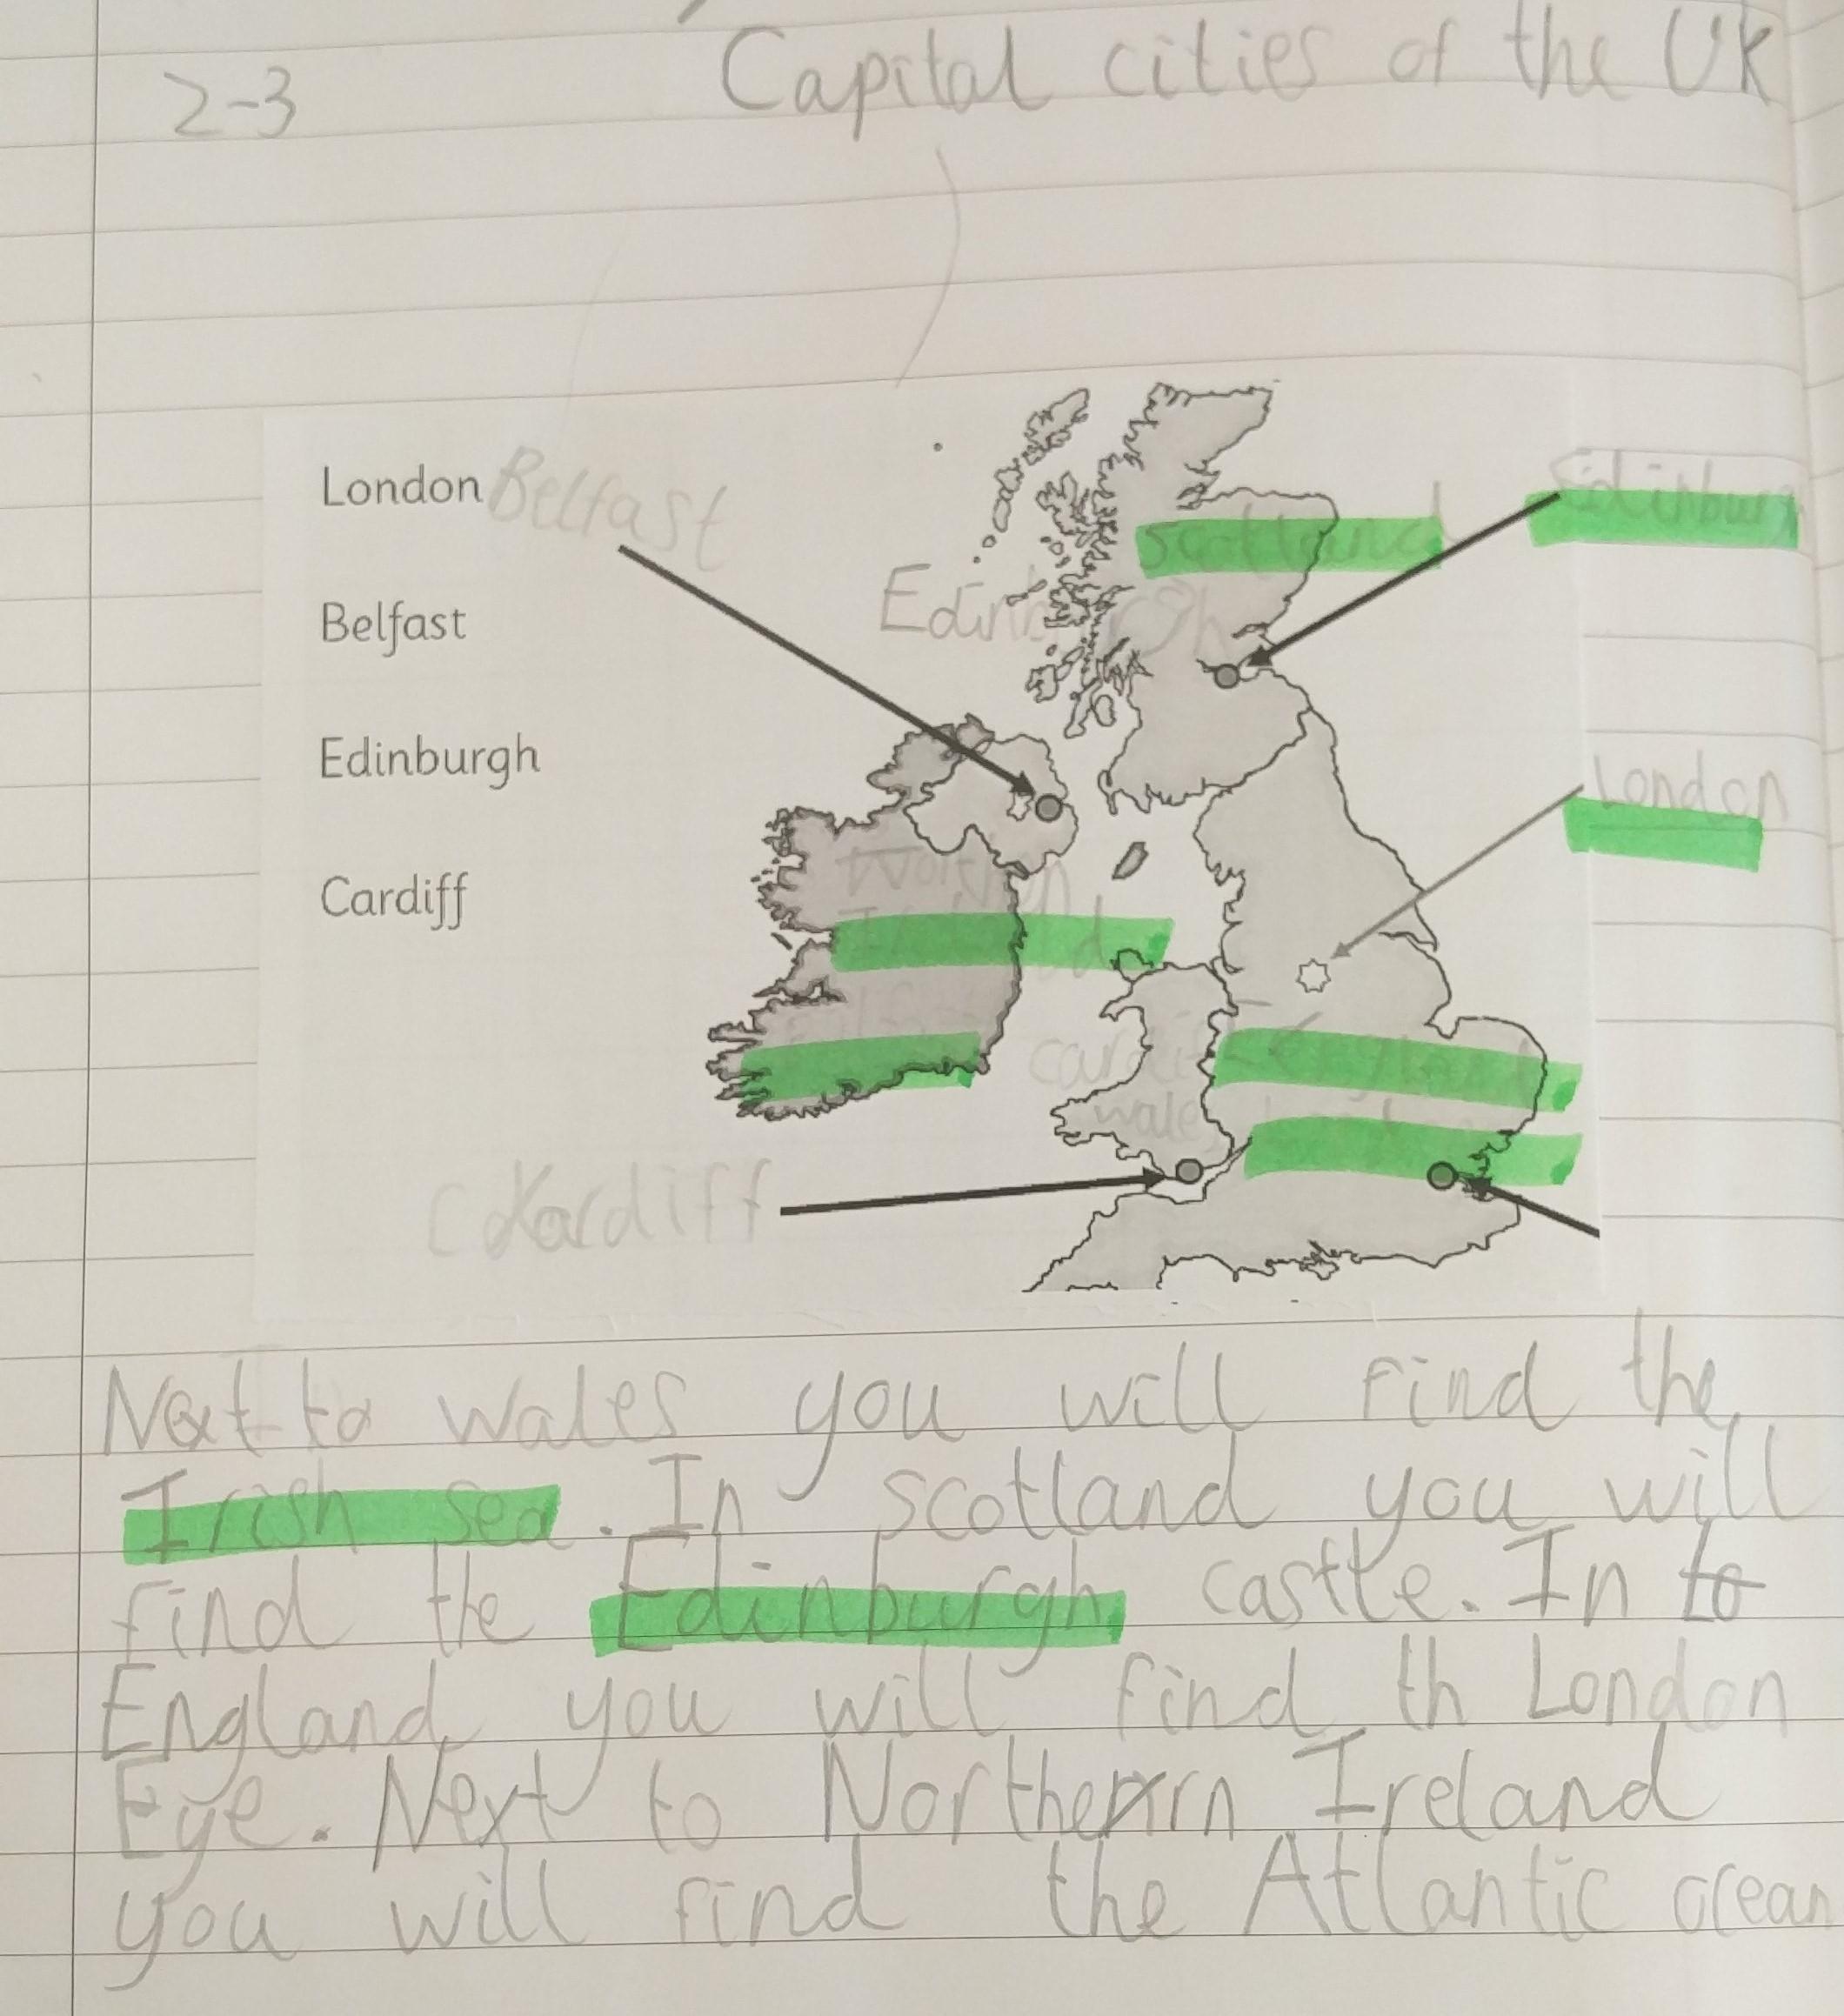 2-3
Capital cities of the Uk
London Belfast
Belfast
Edinburgh
Cardiff
Scotland
Edinburgh
London
Northen
Ireland
cardiff
England
wales
Cardiff
Next to wales you will find the
Irish sea. In scotland you will
find the Edinburgh castle. In to
England you will find th London
Eye. Next to Northern Ireland
you will find the Atlantic ocean